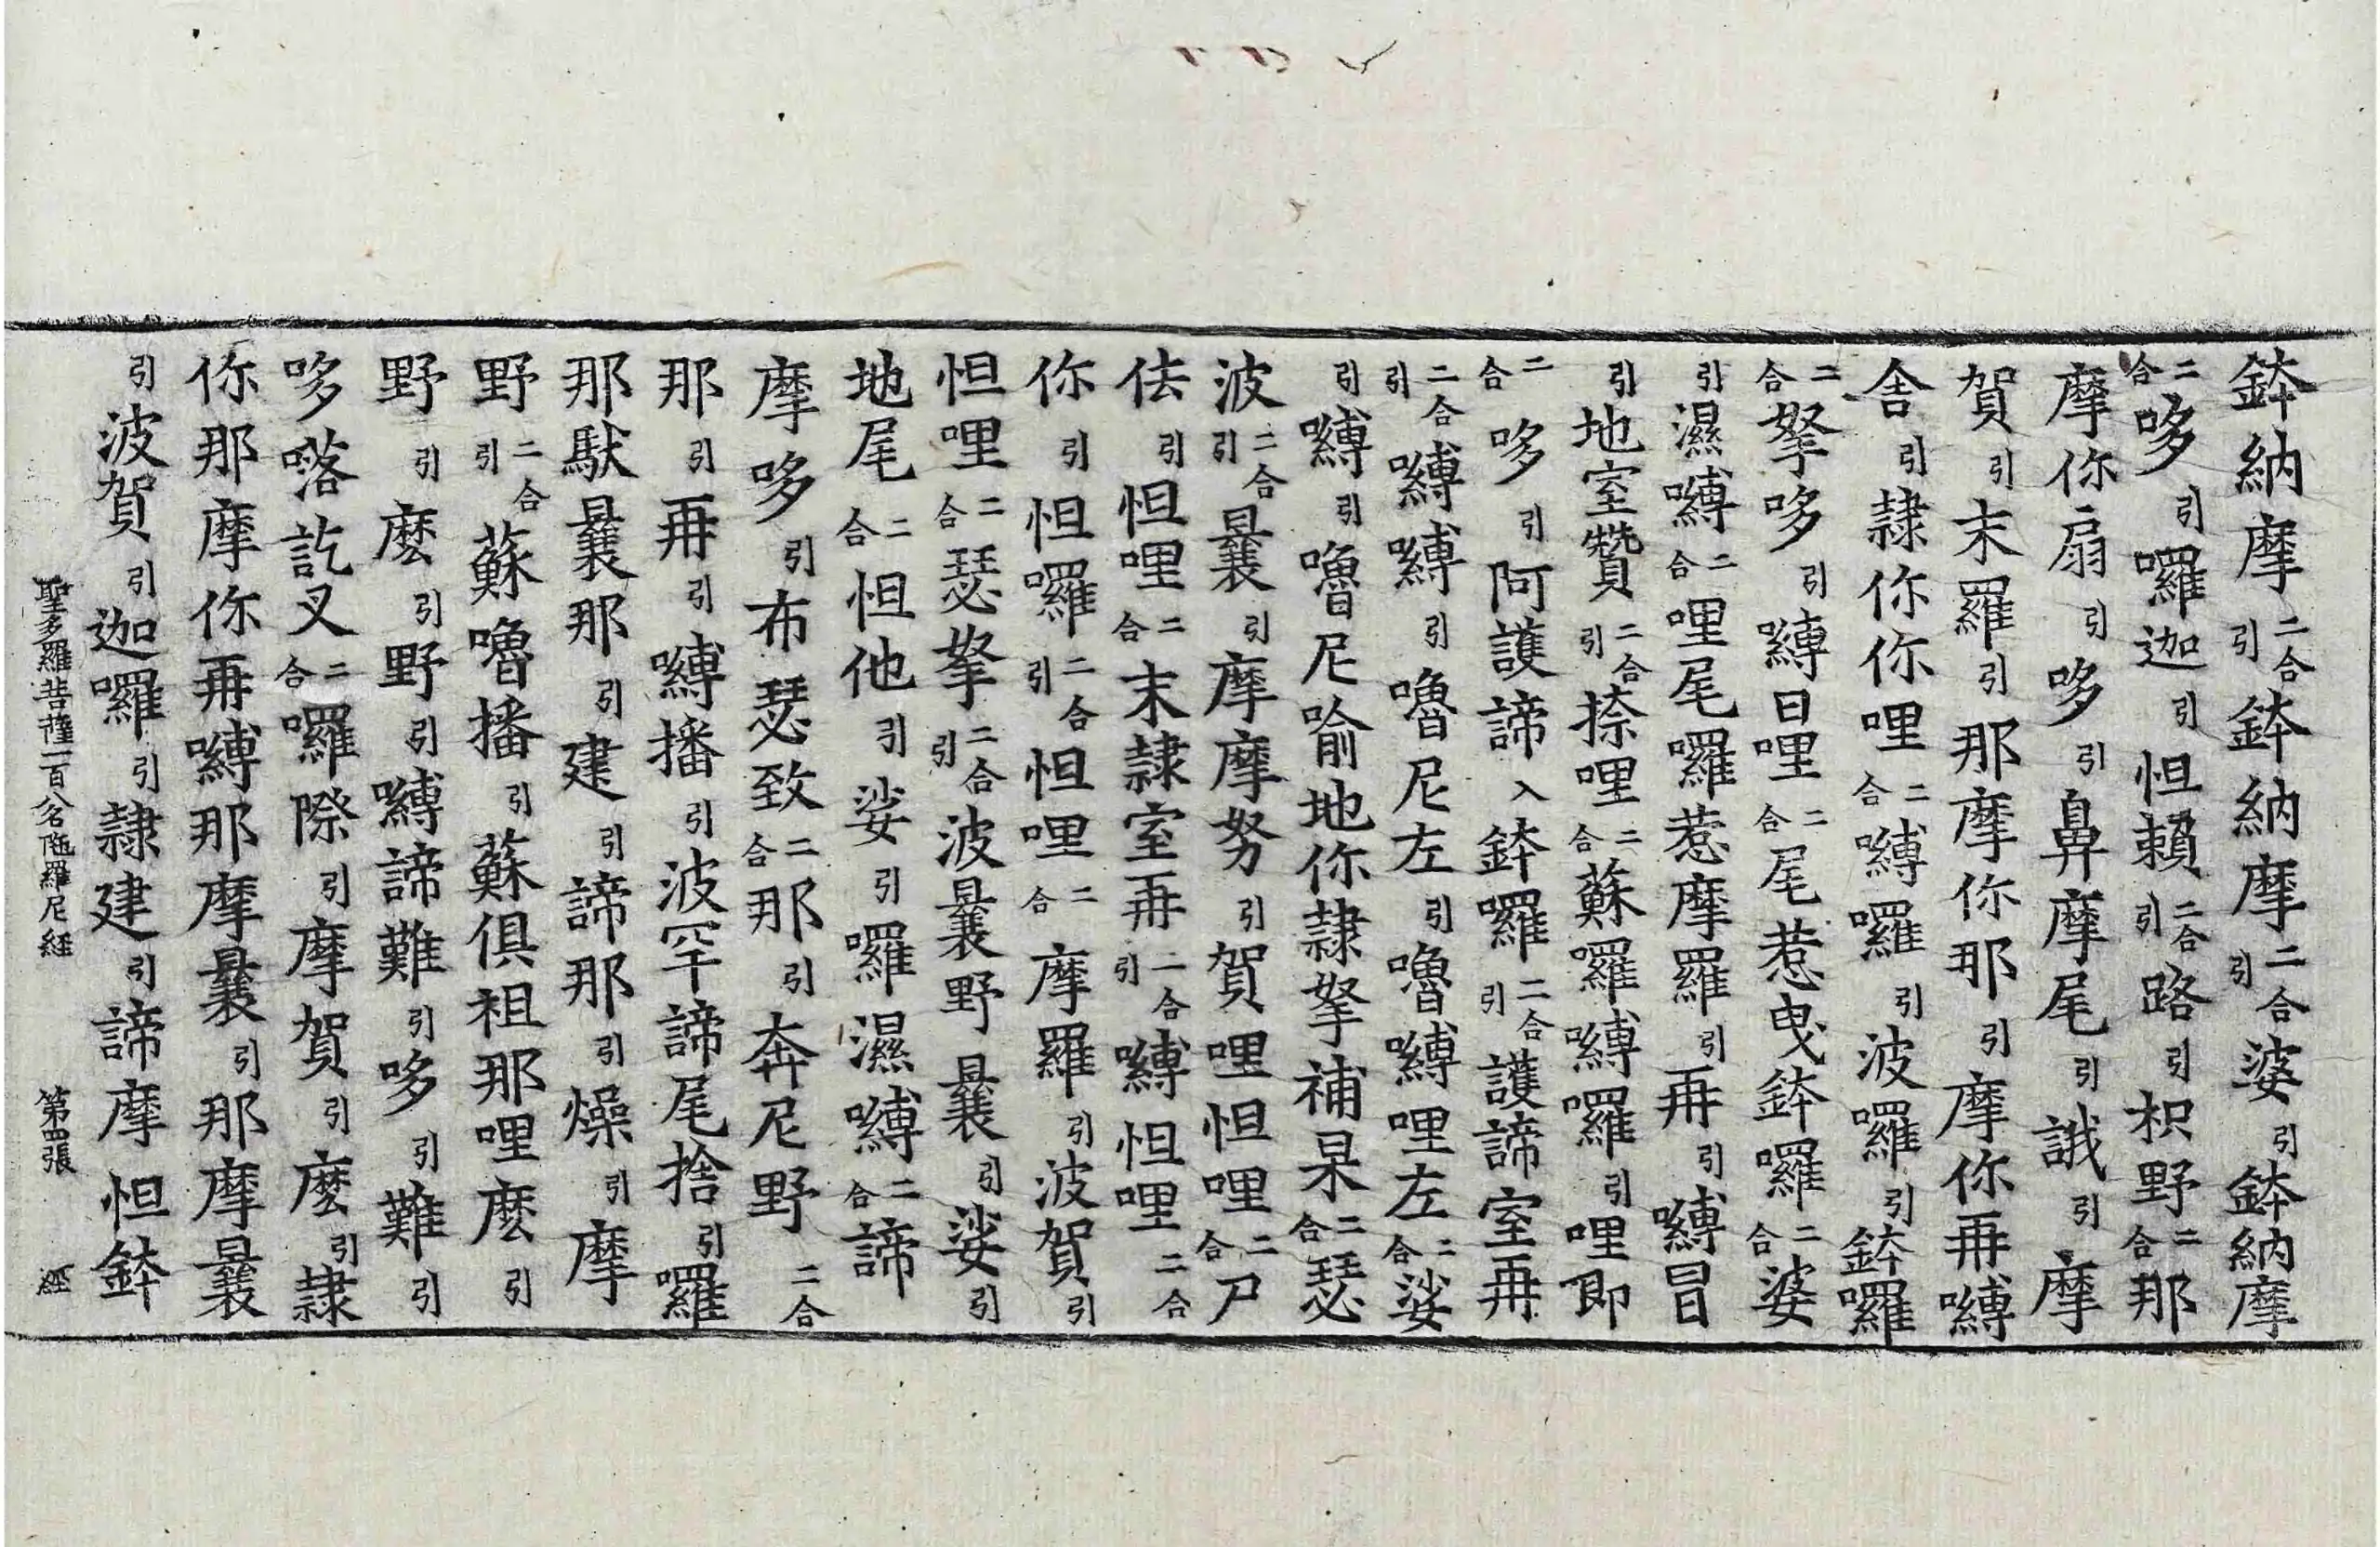 鉢納摩二合引鉢納摩二合引婆引鉢納摩
二合哆引囉迦引怛賴二合引路引枳野二合那
摩你扇引哆引鼻摩尾引誐引摩
賀引末羅引那摩你那引摩你再嚩
舍引隷你你哩二合嚩囉引波囉引鉢囉
二合拏哆引嚩日哩二合尾惹曳鉢囉二合婆
引濕嚩二合哩尾囉惹摩羅引再引嚩冒
引地室贊二合引捺哩二合蘇囉嚩囉引哩郎
二合哆引阿護諦入鉢囉二合引護諦室再
二合引嚩嚩引嚕尼左引嚕嚩哩左二合娑
引嚩引嚕尼喻地你隷拏補杲二合瑟
波二合引曩引摩摩努引賀哩怛哩二合尸
佉引怛哩二合末隷室再二合引嚩怛哩二合
你引怛囉二合引怛哩二合摩羅引波賀引
怛哩二合瑟拏二合引波曩野曩引娑引
地尾二合怛他引娑引囉濕嚩二合諦
摩哆引布瑟致二合那引奔尼野二合
那引再引嚩播引波罕諦尾捨引囉
那馱曩那引建引諦那引燥引摩
野二合引蘇嚕播引蘇俱祖那哩麽引
野引麽引野引嚩諦難引哆引難引
哆㗙訖叉二合囉際引摩賀引麽引隷
你那摩你再嚩那摩曩引那摩曩
引波賀引迦囉引隷建引諦摩怛鉢
聖多羅菩薩一百八名陁羅尼經 第四張 經